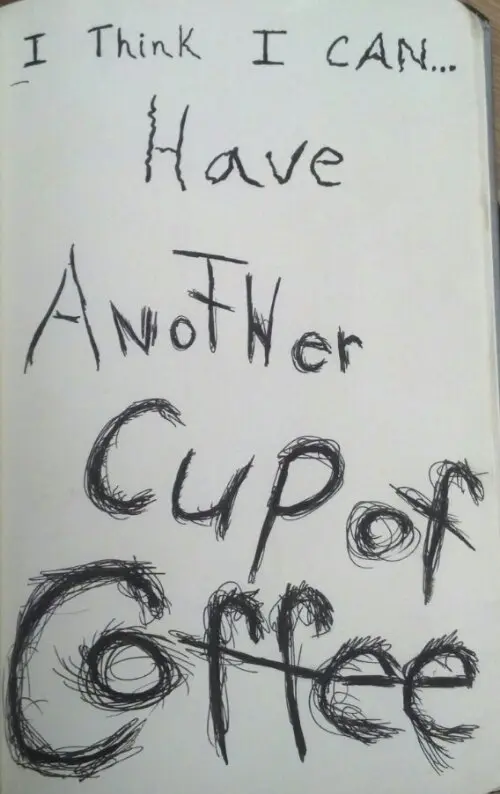 I Think I CAN...
Have
AnoTHer
Cup of
Coffee